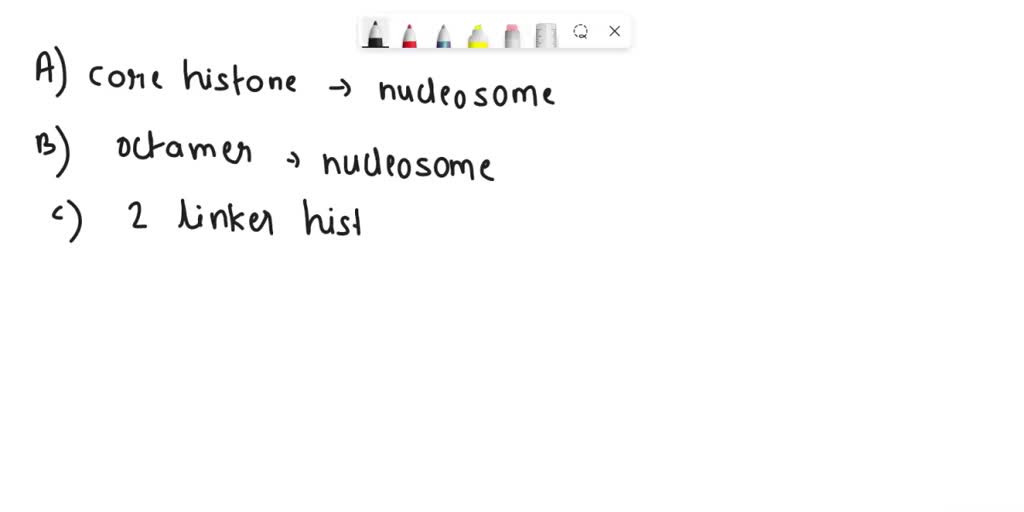 A) core histone → nucleosome
B) octamer → nucleosome
c) 2 linker hist